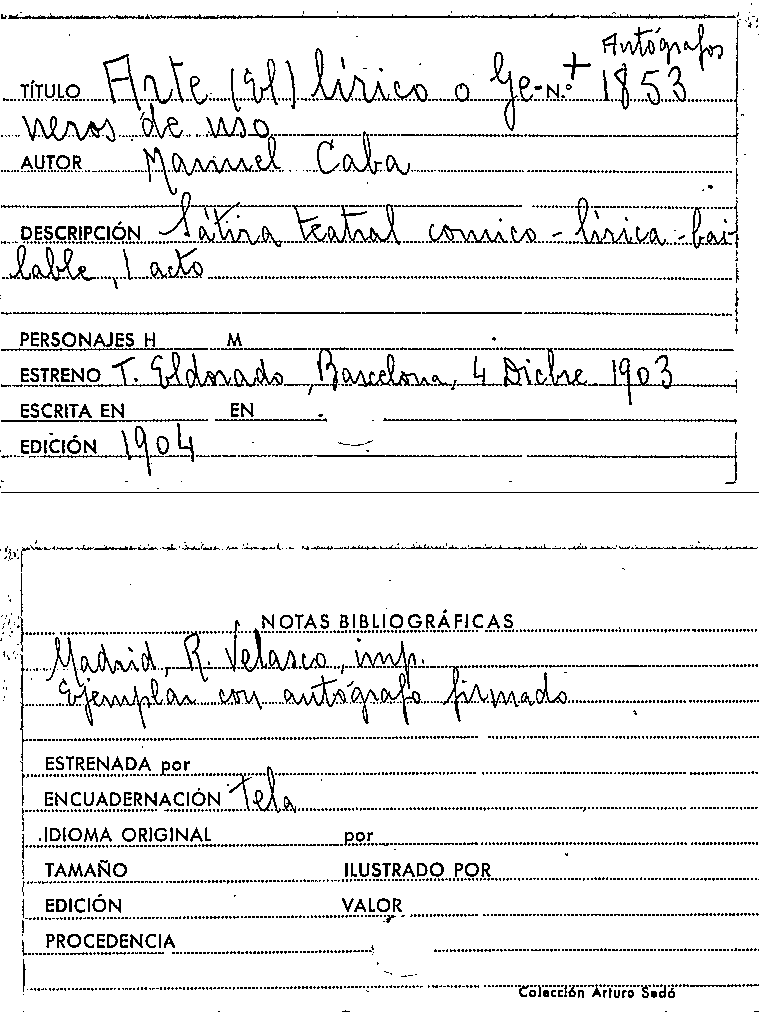 Autógrafos
TÍTULO Arte (El) lírico o Ge- N.º + 1853
neros de uso
AUTOR Manuel Caba
DESCRIPCIÓN Sátira teatral comico-lírica-bai
lable, 1 acto
PERSONAJES H M
ESTRENO T. Eldorado, Barcelona, 4 Dicbre 1903
ESCRITA EN EN
EDICIÓN 1904
NOTAS BIBLIOGRÁFICAS
Madrid, R. Velasco, imp.
Ejemplar con autógrafo firmado
ESTRENADA por
ENCUADERNACIÓN Tela
IDIOMA ORIGINAL por
TAMAÑO ILUSTRADO POR
EDICIÓN VALOR
PROCEDENCIA
Colección Arturo Sedó